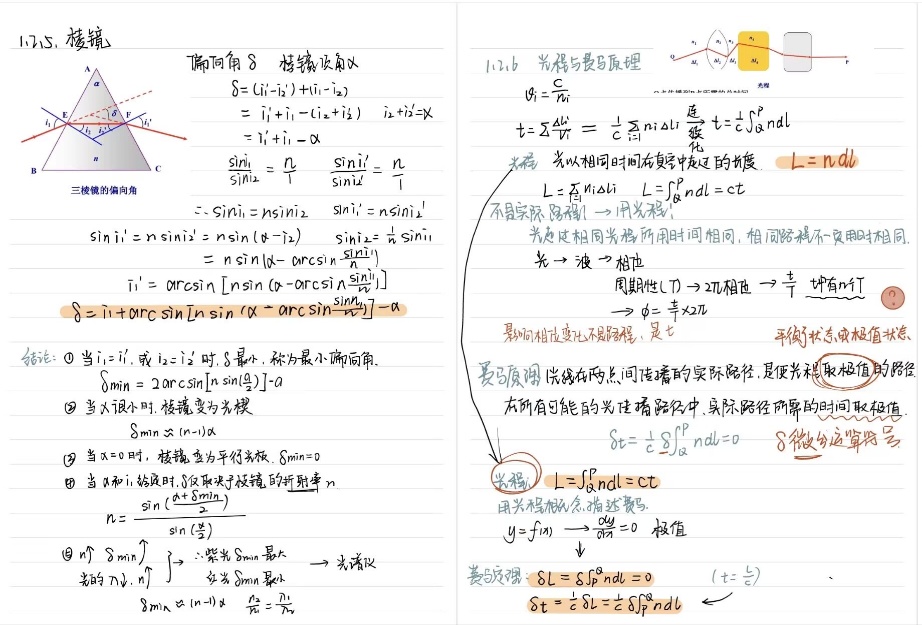 1.2.5. 棱镜
A
α
E
δ
F
i₁
i₂
i₂'
i₁'
n
B
C
三棱镜的偏向角
偏向角δ 棱镜顶角α
δ=(i₁'-i₂')+(i₁-i₂)
= i₁'+i₁-(i₂+i₂') i₂+i₂'=α
= i₁'+i₁-α
sini₁/sini₂ = n/1 sini₁'/sini₂' = n/1
∴ sini₁=nsini₂ sini₁'=nsini₂'
sini₁'=nsini₂'=nsin(α-i₂) sini₂=1/n sini₁
= nsin(α-arcsin sini₁/n)
i₁'=arcsin[nsin(α-arcsin sini₁/n)]
δ=i₁+arcsin[nsin(α-arcsin sini₁/n)]-α
结论: ① 当i₁=i₁',或i₂=i₂'时,δ最小,称为最小偏向角.
δmin=2arcsin[nsin(α/2)]-α
② 当α很小时,棱镜变为光楔
δmin≈(n-1)α
③ 当α=0时,棱镜变为平行光板,δmin=0
④ 当α和i₁给定时,δ仅取决于棱镜的折射率n
n=sin((α+δmin)/2)/sin(α/2)
⑤ n↑ δmin↑
光的λ↓,n↑
∴紫光δmin最大
红光δmin最小
→ 光谱仪
δmin≈(n-1)α n₂/n₁=λ₁/λ₂
1.2.6 光程与费马原理
Q
n₁
n₂
n₃
Δl₁
Δl₂
Δl₃
P
光程
vᵢ=c/nᵢ
t=ΣΔlᵢ/vᵢ = 1/c Σᵢ₌₁ nᵢΔlᵢ 连续化→ t=1/c∫_Q^P ndl
光程: 光以相同时间在真空中走过的长度. L=ndl
L=Σᵢ₌₁nᵢΔlᵢ L=∫_Q^P ndl=ct
不是实际路程! → 用光程!
光走过相同光程所用时间相同,相同路程不一定用时相同.
光→波→相位
周期性(T)→2π相位→t/T 中有n个T
→ φ=t/T×2π
影响相位变化不是路程,是t
?
平衡状态,取极值状态
费马原理:光线在两点间传播的实际路径,是使光程取极值的路径
在所有可能的光传播路径中,实际路径所需的时间取极值.
δt=1/c δ∫_Q^P ndl=0 δ微分运算符号
光程: L=∫_Q^P ndl=ct
用光程概念描述费马.
y=f(x) → dy/dx=0 极值
↓
费马原理: δL=δ∫_P^Q ndl=0 (t=L/c)
δt=1/c δL=1/c δ∫_P^Q ndl